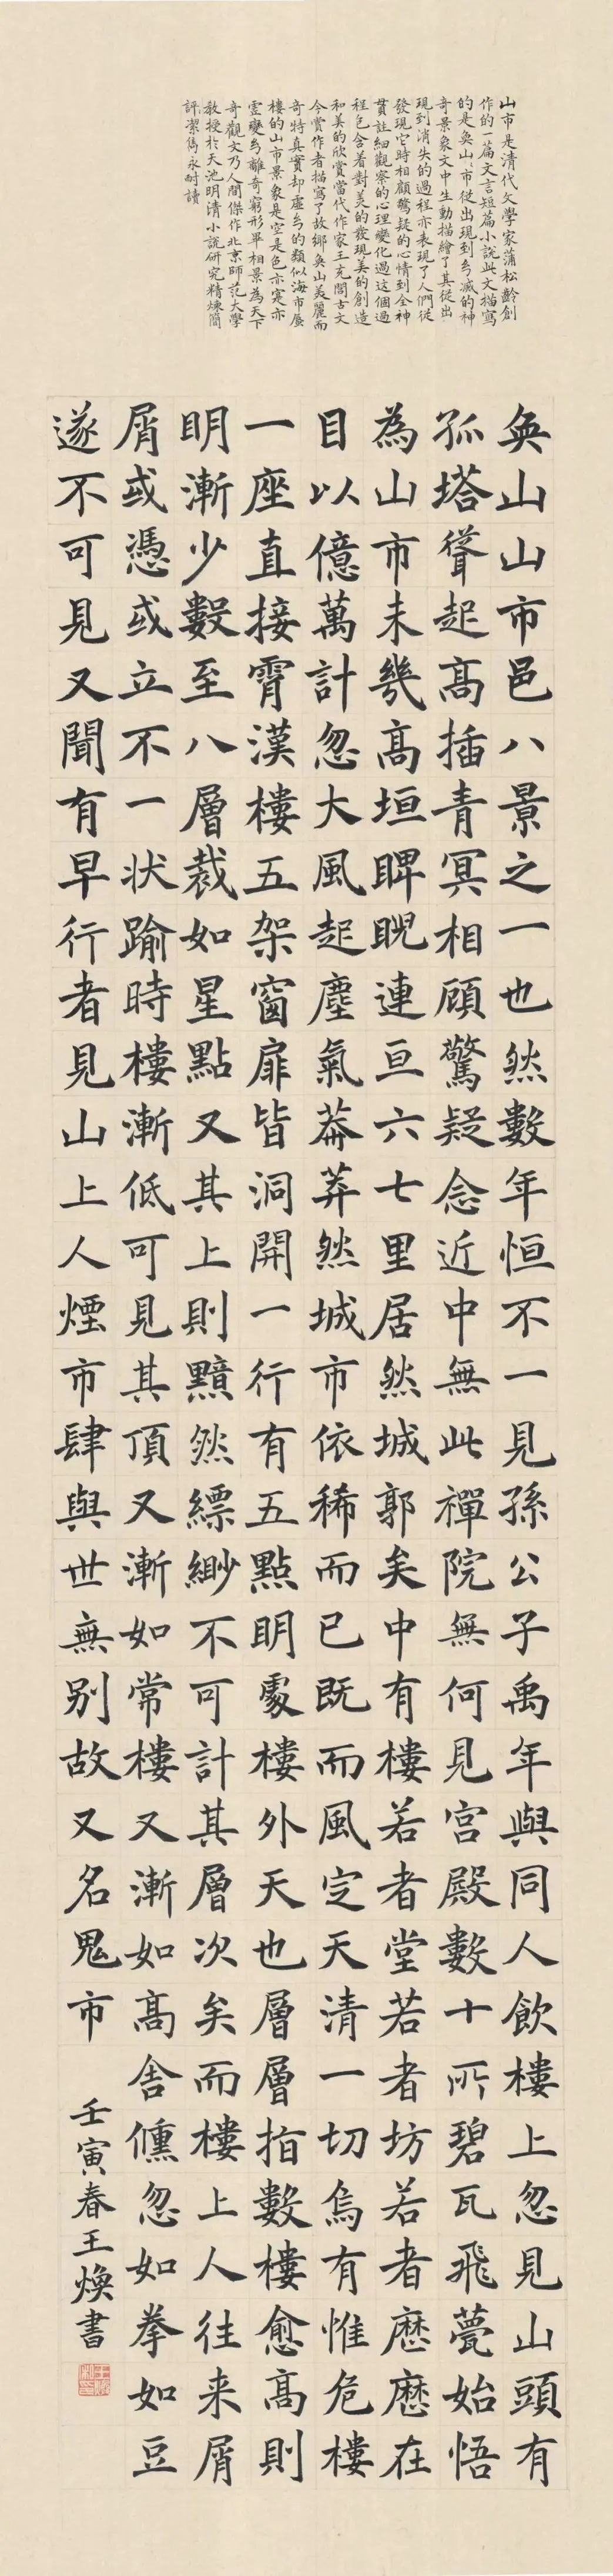 山市是清代文學家蒲松齡創
作的一篇文言短篇小說此文描寫
的是奐山市從出現到幻滅的神
奇景象文中生動描繪了其從出
現到消失的過程亦表現了人們從
發現它時相顧驚疑的心情到全神
貫註細觀察的心理變化過這個過
程包含着對美的發現美的創造
和美的欣賞當代作家王充閭古文
今賞作者描寫了故鄉奐山美麗而
奇特真實却虛幻的類似海市蜃
樓的山市景象是空是色亦寞亦
靈變幻離奇窮形畢相景為天下
奇觀文乃人間傑作北京師范大學
教授於天池明清小說研究精煉簡
評潔雋永耐讀
奐山山市邑八景之一也然數年恒不一見孫公子禹年與同人飲樓上忽見山頭有
孤塔聳起高插青冥相顧驚疑念近中無此禪院無何見宮殿數十所碧瓦飛甍始悟
為山市未幾高垣睥睨連亘六七里居然城郭矣中有樓若者堂若者坊若者歷歷在
目以億萬計忽大風起塵氣莽莽然城市依稀而已既而風定天清一切烏有惟危樓
一座直接霄漢樓五架窗扉皆洞開一行有五點明處樓外天也層層指數樓愈高則
明漸少數至八層裁如星點又其上則黯然縹緲不可計其層次矣而樓上人往来屑
屑或憑或立不一狀踰時樓漸低可見其頂又漸如常樓又漸如高舍儵忽如拳如豆
遂不可見又聞有早行者見山上人煙市肆與世無别故又名鬼市
壬寅春王煥書